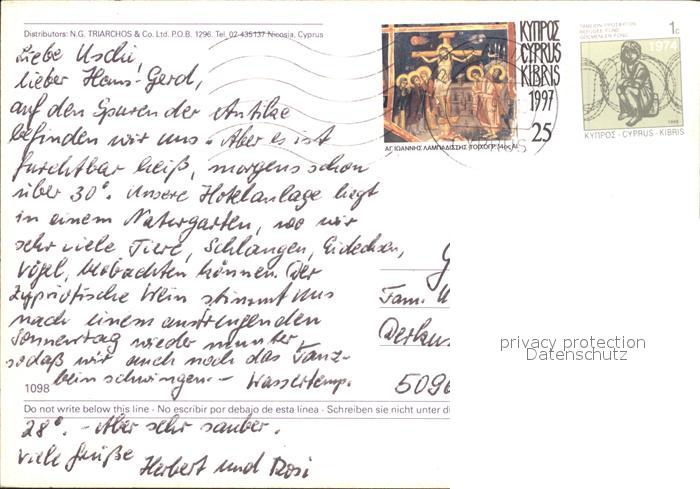 Distributors: N.G. TRIARCHOS & Co. Ltd. P.O.B. 1296. Tel. 02-435137 Nicosia, Cyprus
Liebe Uschi,
lieber Hans-Gerd,
auf den Spuren der Antike
befinden wir uns. Aber es ist
furchtbar heiß, morgens schon
über 30°. Unsere Hotelanlage liegt
in einem Naturgarten, wo wir
sehr viele Tiere, Schlangen, Eidechsen,
Vögel, beobachten können. Der
Zypriotische Wein stimmt uns
nach einem anstrengenden
Sonnentag wieder munter,
sodaß wir auch noch das Tanz-
bein schwingen. - Wassertemp.
1098
Do not write below this line - No escribir por debajo de esta línea - Schreiben sie nicht unter di
28°. - Aber sehr sauber.
Viele Grüße
Herbert und Rosi
ΚΥΠΡΟΣ
CYPRUS
KIBRIS
1997
25
ΑΓ. ΙΩΑΝΝΗΣ ΛΑΜΠΑΔΙΣΤΗΣ (ΤΟΙΧΟΓΡ. 14ος ΑΙ.
1c
ΤΑΜΕΙΟΝ ΠΡΟΣΦΥΓΩΝ
REFUGEE FUND
GÖÇMENLER FONU
1974
ΚΥΠΡΟΣ · CYPRUS · KIBRIS
Fam.
Derkus
5096
privacy protection
Datenschutz